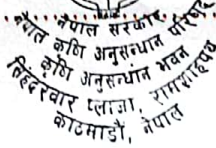 नेपाल सरकार
नेपाल कृषि अनुसन्धान परिषद
कृषि अनुसन्धान भवन
सिंहदरवार प्लाजा, रामशाहपथ
काठमाडौं, नेपाल